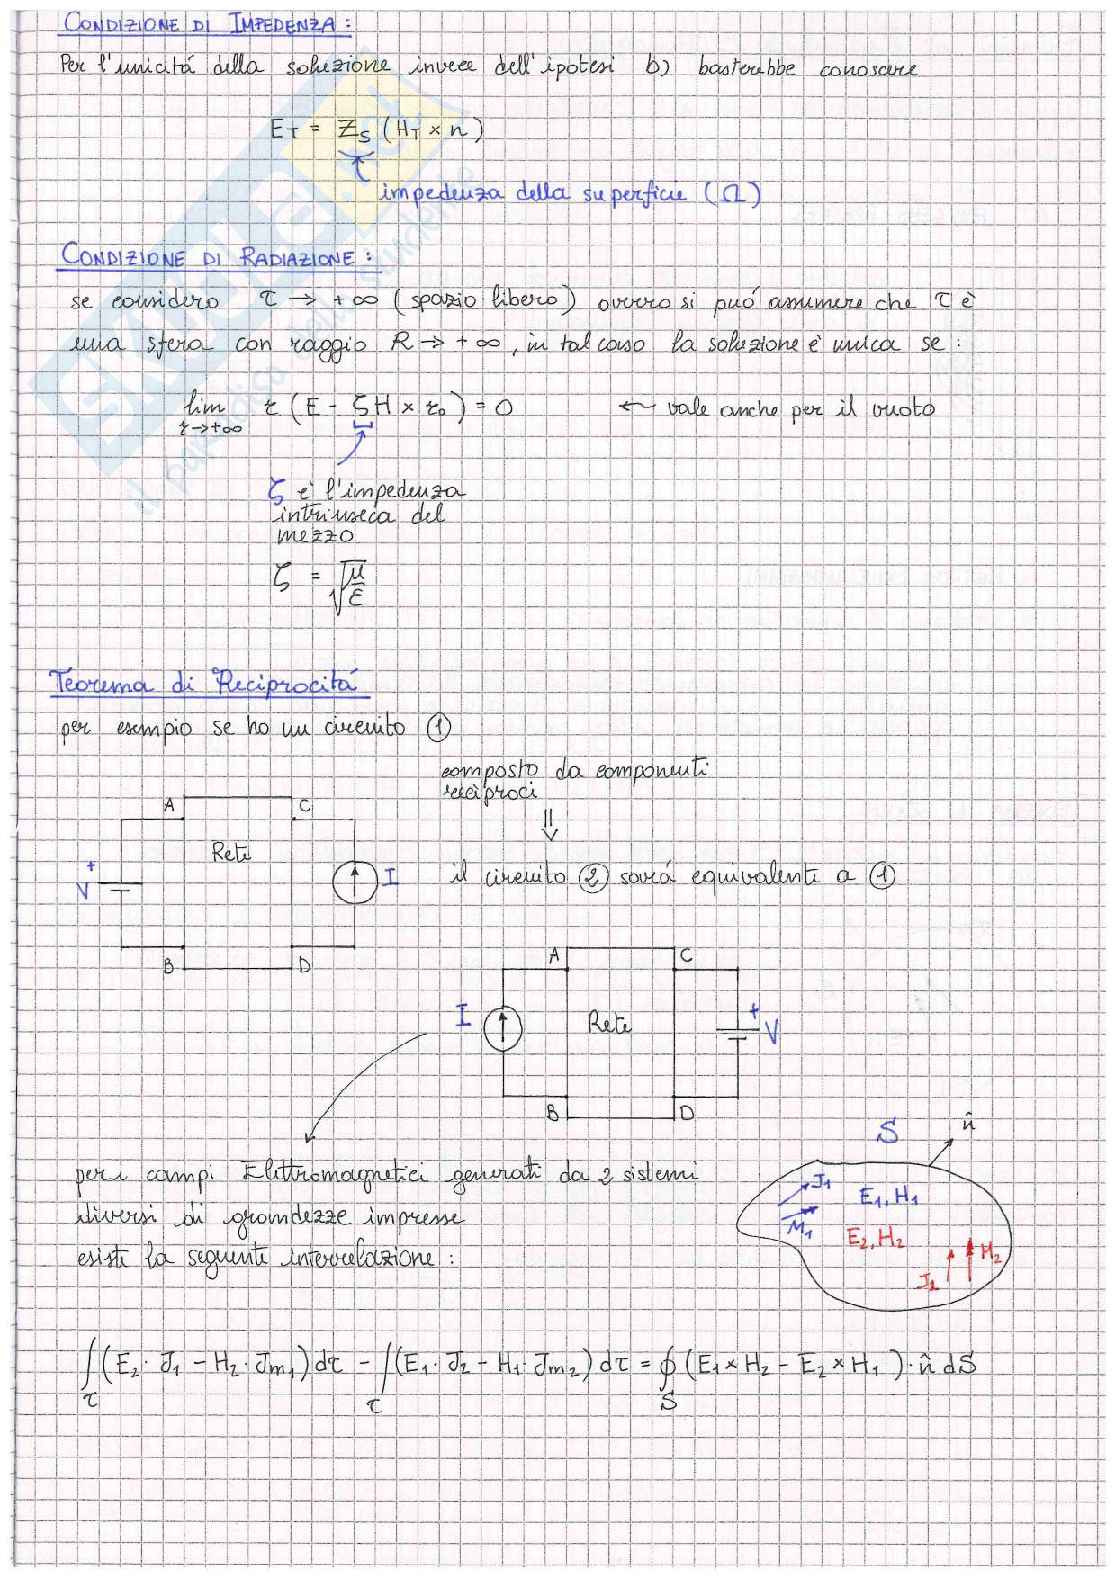 CONDIZIONE DI IMPEDENZA :
Per l'unicitá della soluzione invece dell'ipotesi b) basterebbe conoscere
E_T = Z_S (H_T × n)
impedenza della superficie (Ω)
CONDIZIONE DI RADIAZIONE :
se considero τ → +∞ (spazio libero) ovvero si puó assumere che τ é
una sfera con raggio R → +∞, in tal caso la soluzione é unica se :
lim r→+∞ r (E - ζH × r₀) = 0 ← vale anche per il vuoto
ζ é l'impedenza
intrinseca del
mezzo
ζ = √(μ/ε)
Teorema di Reciprocitá
per esempio se ho un circuito ①
composto da componenti
reciproci
⇓
A C
Rete
+
V
I
B D
il circuito ② sará equivalente a ①
A C
I
Rete
+
V
B D
per i campi Elettromagnetici generati da 2 sistemi
diversi di grandezze impresse
esiste la seguente interrelazione :
S n̂
J₁
M₁
E₁, H₁
E₂, H₂
J₂
M₂
∫_τ (E₂ · J₁ - H₂ · Jm₁) dτ - ∫_τ (E₁ · J₂ - H₁ · Jm₂) dτ = ∮_S (E₁ × H₂ - E₂ × H₁) · n̂ dS